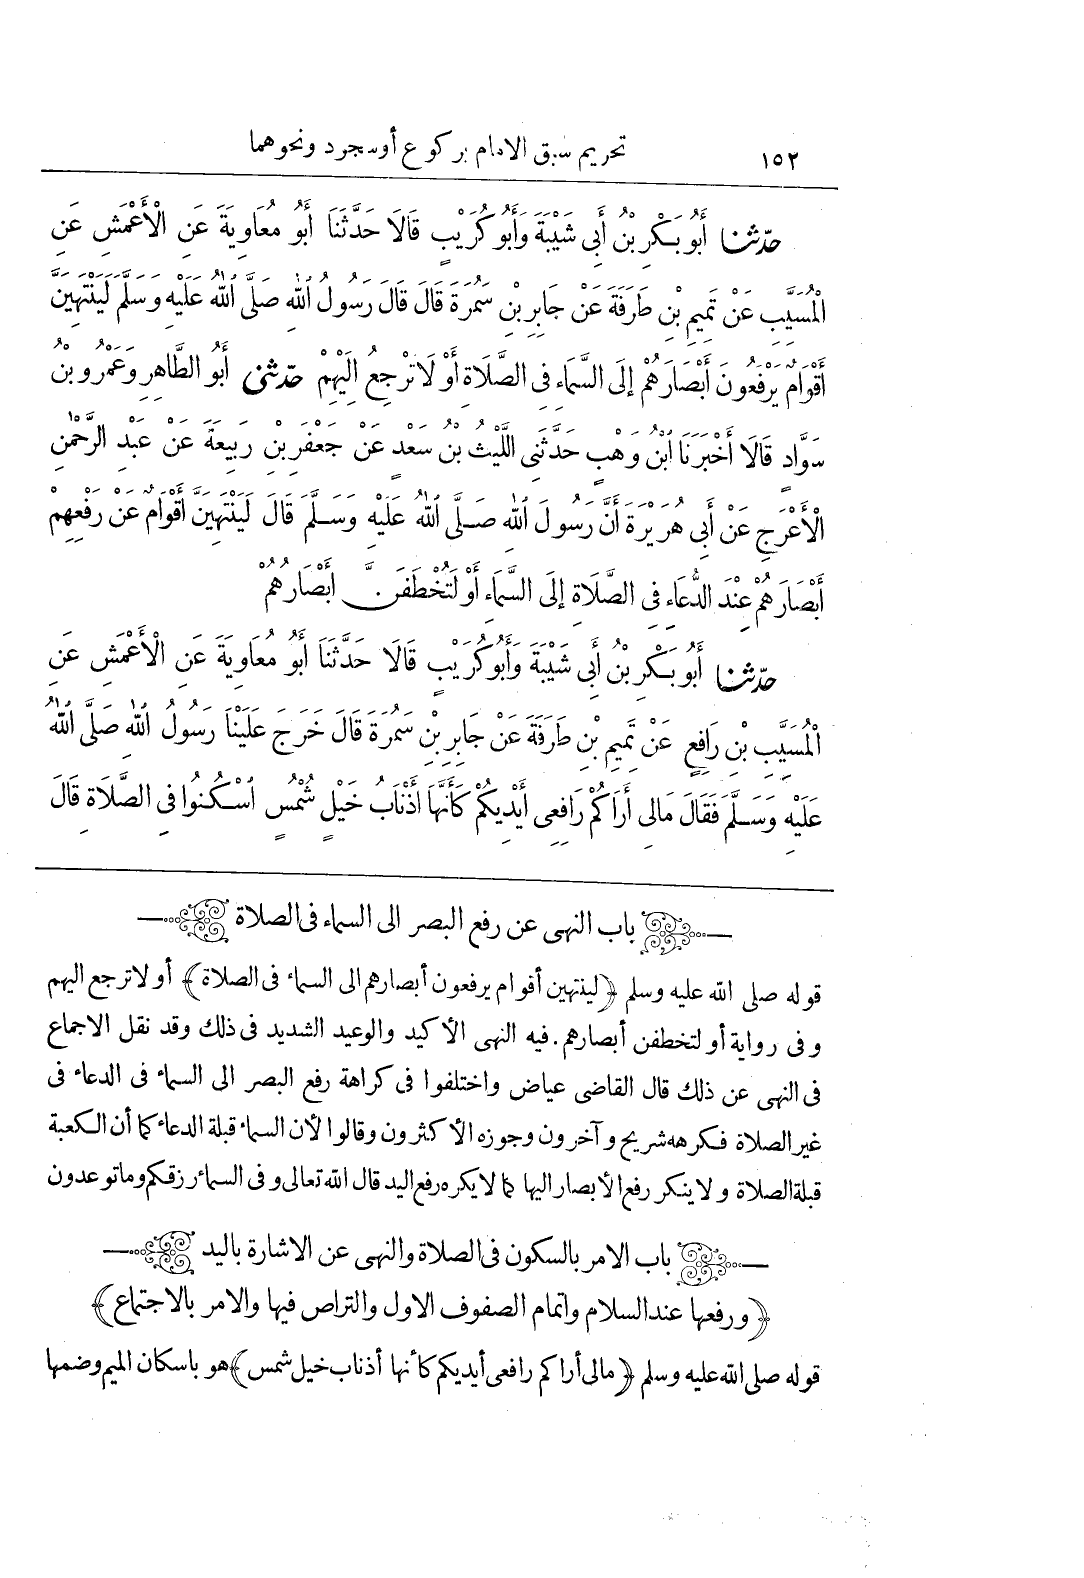 ١٥٢ تحريم سبق الامام بركوع أو سجود ونحوهما
حدّثنا أَبُو بَكْرِ بْنُ أَبِي شَيْبَةَ وَأَبُو كُرَيْبٍ قَالَا حَدَّثَنَا أَبُو مُعَاوِيَةَ عَنِ الْأَعْمَشِ عَنِ
الْمُسَيَّبِ عَنْ تَمِيمِ بْنِ طَرَفَةَ عَنْ جَابِرِ بْنِ سَمُرَةَ قَالَ قَالَ رَسُولُ اللهِ صَلَّى اللهُ عَلَيْهِ وَسَلَّمَ لَيَنْتَهِيَنَّ
أَقْوَامٌ يَرْفَعُونَ أَبْصَارَهُمْ إِلَى السَّمَاءِ فِي الصَّلَاةِ أَوْ لَا تَرْجِعُ إِلَيْهِمْ حدّثنى أَبُو الطَّاهِرِ وَعَمْرُو بْنُ
سَوَّادٍ قَالَا أَخْبَرَنَا ابْنُ وَهْبٍ حَدَّثَنِي اللَّيْثُ بْنُ سَعْدٍ عَنْ جَعْفَرِ بْنِ رَبِيعَةَ عَنْ عَبْدِ الرَّحْمٰنِ
الْأَعْرَجِ عَنْ أَبِي هُرَيْرَةَ أَنَّ رَسُولَ اللهِ صَلَّى اللهُ عَلَيْهِ وَسَلَّمَ قَالَ لَيَنْتَهِيَنَّ أَقْوَامٌ عَنْ رَفْعِهِمْ
أَبْصَارَهُمْ عِنْدَ الدُّعَاءِ فِي الصَّلَاةِ إِلَى السَّمَاءِ أَوْ لَتُخْطَفَنَّ أَبْصَارُهُمْ
حدّثنا أَبُو بَكْرِ بْنُ أَبِي شَيْبَةَ وَأَبُو كُرَيْبٍ قَالَا حَدَّثَنَا أَبُو مُعَاوِيَةَ عَنِ الْأَعْمَشِ عَنِ
الْمُسَيَّبِ بْنِ رَافِعٍ عَنْ تَمِيمِ بْنِ طَرَفَةَ عَنْ جَابِرِ بْنِ سَمُرَةَ قَالَ خَرَجَ عَلَيْنَا رَسُولُ اللهِ صَلَّى اللهُ
عَلَيْهِ وَسَلَّمَ فَقَالَ مَالِي أَرَاكُمْ رَافِعِي أَيْدِيكُمْ كَأَنَّهَا أَذْنَابُ خَيْلٍ شُمْسٍ اُسْكُنُوا فِي الصَّلَاةِ قَالَ
باب النهى عن رفع البصر الى السماء فى الصلاة
قوله صلى الله عليه وسلم ﴿لينتهين أقوام يرفعون أبصارهم الى السماء فى الصلاة﴾ أو لا ترجع اليهم
وفى رواية أو لتخطفن أبصارهم. فيه النهى الأكيد والوعيد الشديد فى ذلك وقد نقل الاجماع
فى النهى عن ذلك قال القاضى عياض واختلفوا فى كراهة رفع البصر الى السماء فى الدعاء فى
غير الصلاة فكرهه شريح وآخرون وجوزه الأكثرون وقالوا لأن السماء قبلة الدعاء كما أن الكعبة
قبلة الصلاة ولا ينكر رفع الأبصار اليها كما لا يكره رفع اليد قال الله تعالى وفى السماء رزقكم وما توعدون
باب الامر بالسكون فى الصلاة والنهى عن الاشارة باليد
﴿ورفعها عند السلام واتمام الصفوف الاول والتراص فيها والامر بالاجتماع﴾
قوله صلى الله عليه وسلم ﴿مالى أراكم رافعى أيديكم كأنها أذناب خيل شمس﴾ هو باسكان الميم وضمها